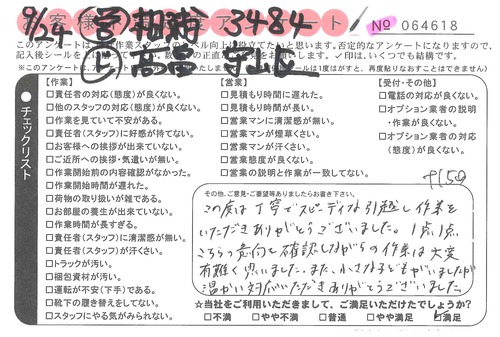 9/24 営 相浦 3484
№ 064618
お客様アンケート
記入後シールを
【作業】
□責任者の対応(態度)が良くない。
□他のスタッフの対応(態度)が良くない。
□作業を見ていて不安がある。
□責任者(スタッフ)に好感が持てない。
□お客様への挨拶が出来ていない。
□ご近所への挨拶・気遣いが無い。
□作業開始前の内容確認がなかった。
□作業開始時間が遅れた。
□荷物の取り扱いが雑である。
□お部屋の養生が出来ていない。
□作業時間が長すぎる。
□責任者(スタッフ)に清潔感が無い。
□責任者(スタッフ)が汗くさい。
□トラックが汚い。
□梱包資材が汚い。
□運転が不安(下手)である。
□靴下の履き替えをしてない。
□スタッフにやる気がみられない。
【営業】
□見積もり時間に遅れた。
□見積もり時間が長い。
□営業マンに清潔感が無い。
□営業マンが煙草くさい。
□営業マンが汗くさい。
□営業態度が良くない。
□営業の説明と作業が一致してない。
【受付・その他】
□電話の対応が良くない。
□オプション業者の説明
・作業が良くない。
□オプション業者の対応
(態度)が良くない。
チェックリスト
その他、ご意見・ご要望等ありましたらお書き下さい。
この度は丁寧でスピーディな引越し作業を
いただきありがとうございました。1点1点
こちらの意向を確認しながらの作業は大変
有難く思いました。また、小さな子どもがいましたが
温かい対応いただきありがとうございました。
☆当社をご利用いただきまして、ご満足いただけたでしょうか?
□不満 □やや不満 □普通 □やや満足 □満足